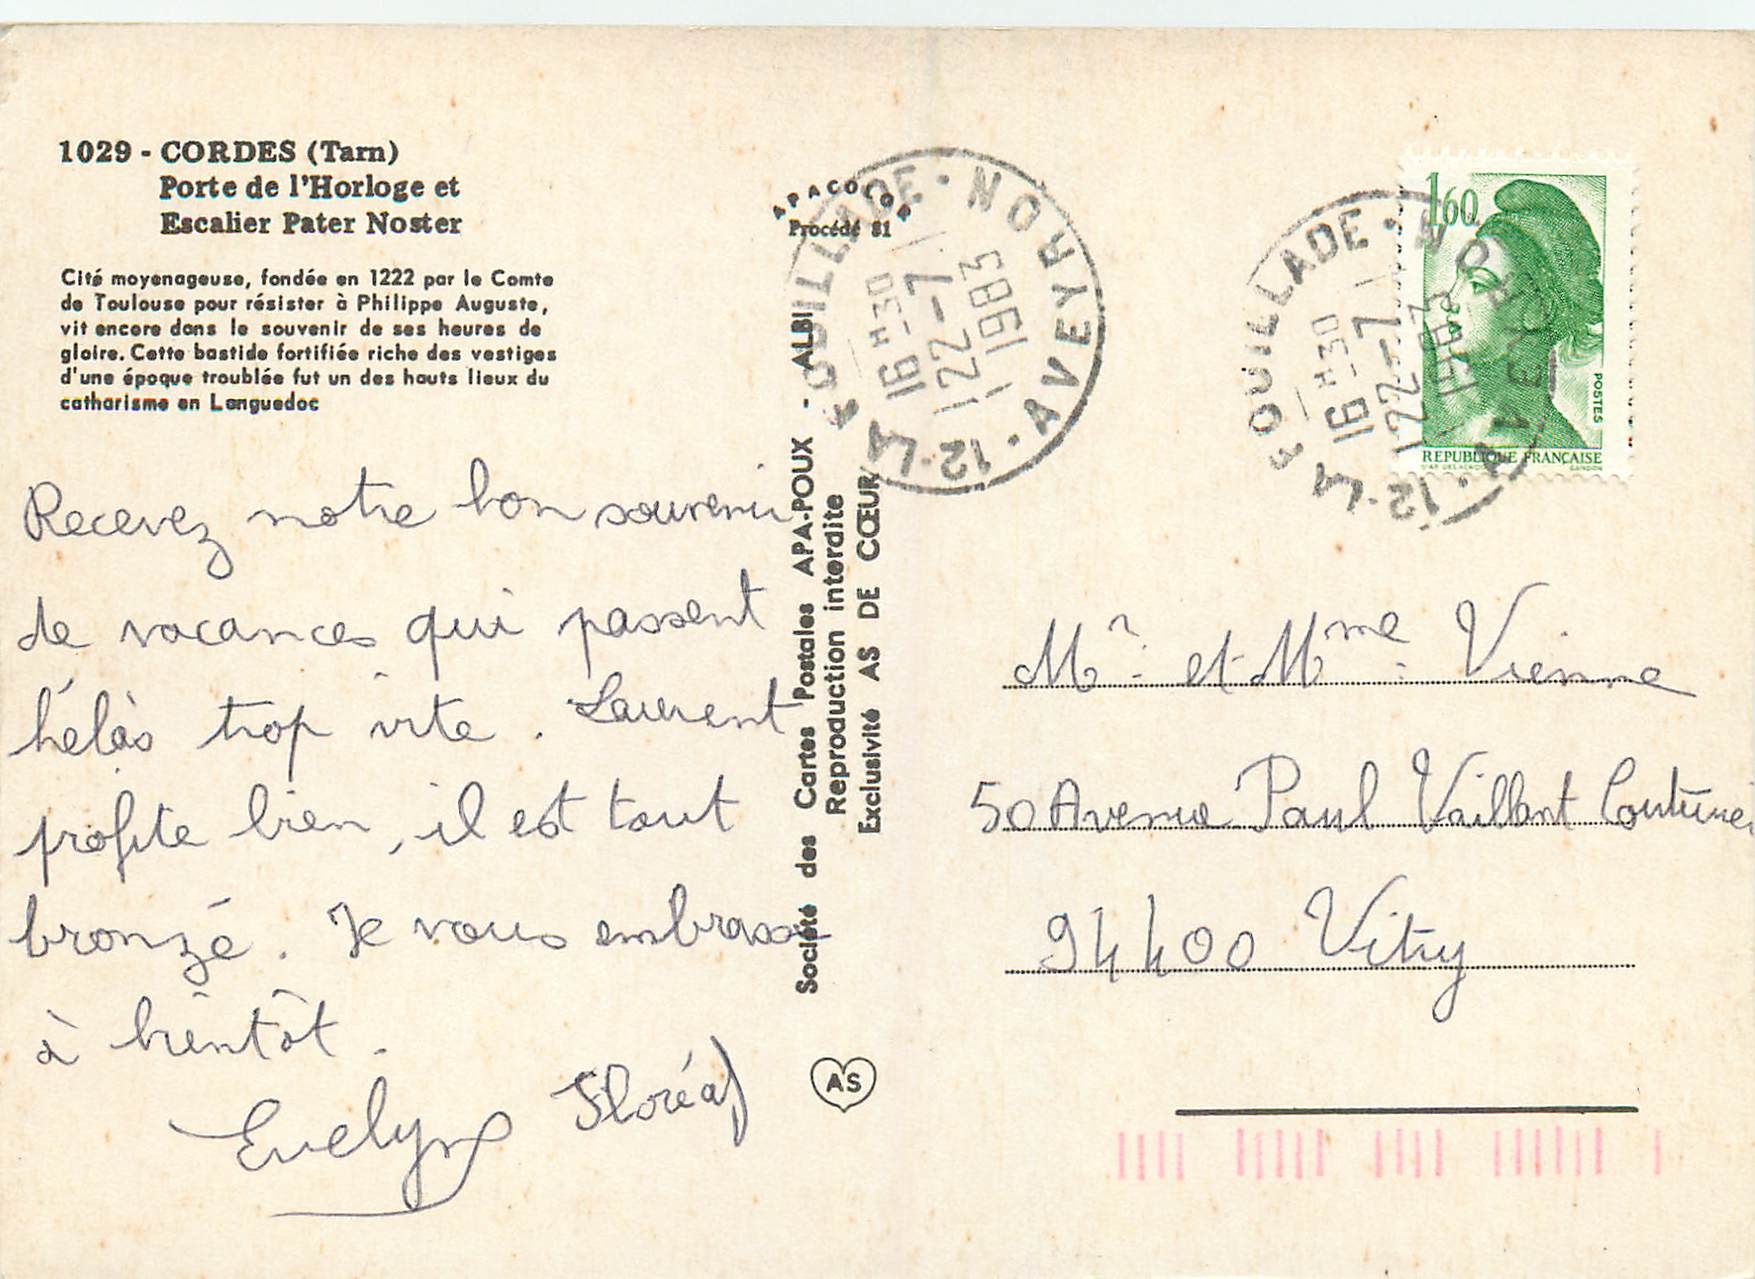 1029 - CORDES (Tarn)
Porte de l'Horloge et
Escalier Pater Noster
Cité moyenageuse, fondée en 1222 par le Comte
de Toulouse pour résister à Philippe Auguste,
vit encore dans le souvenir de ses heures de
gloire. Cette bastide fortifiée riche des vestiges
d'une époque troublée fut un des hauts lieux du
catharisme en Languedoc
Recevez notre bon souvenir
de vacances qui passent
hélàs trop vite. Laurent
profite bien, il est tout
bronzé. Je vous embrasse
à bientôt.
Evelyne Floréal
APACOLOR
Procédé 81
Société des Cartes Postales APA-POUX - ALBI
Reproduction interdite
Exclusivité AS DE CŒUR
AS
12-LA FOUILLADE · NORD AVEYRON
16H30
22-7
1983
12-LA FOUILLADE · NORD AVEYRON
16H30
22-7
1983
1,60
POSTES
REPUBLIQUE FRANÇAISE
D'AP. DELACROIX GANDON
Mr. et Mme. Vienne
50 Avenue Paul Vaillant Couturier
94400 Vitry